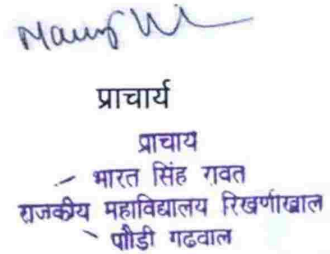 प्राचार्य
प्राचाय
भारत सिंह रावत
राजकीय महाविद्यालय रिखणीखाल
पौडी गढवाल